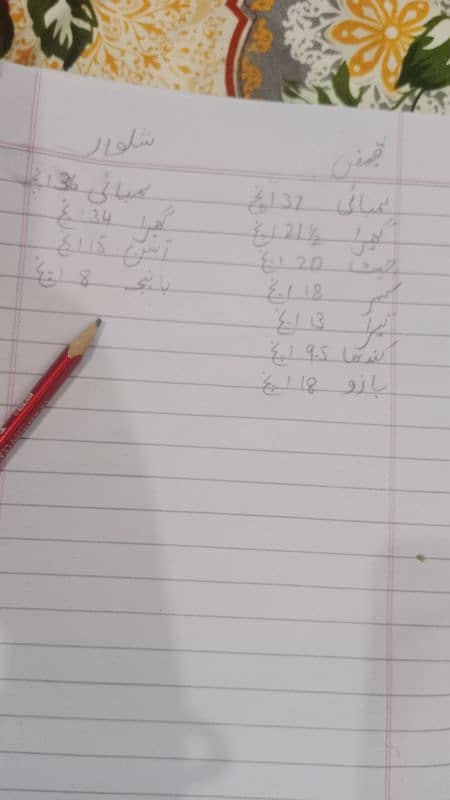 قمیض
لمبائی 37 انچ
گھیرا 21½ انچ
چیسٹ 20 انچ
کمر 18 انچ
تیرا 13 انچ
کندھا 9.5 انچ
بازو 18 انچ
شلوار
لمبائی 36 انچ
گھیرا 34 انچ
آسن 15 انچ
پائنچہ 8 انچ